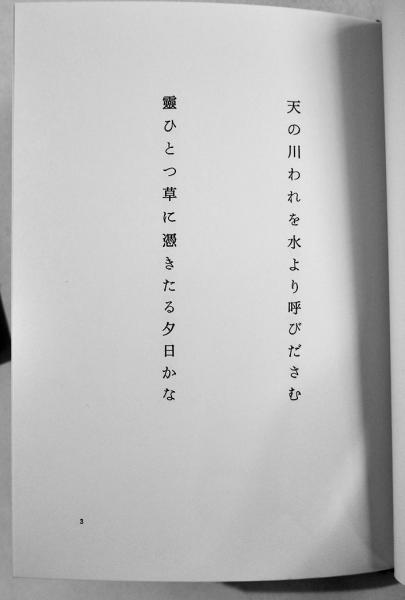 天の川われを水より呼びださむ
靈ひとつ草に憑きたる夕日かな
3